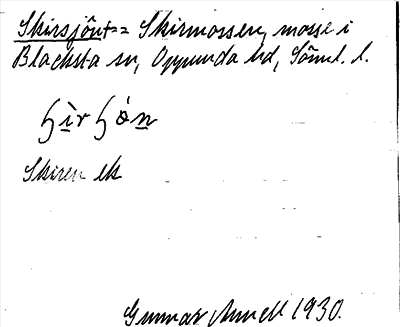 Skirsjönt = Skirmossen, mosse i
Blacksta sn, Oppunda hd, Söml. l.
Skiren ek
Gunnar 1930.